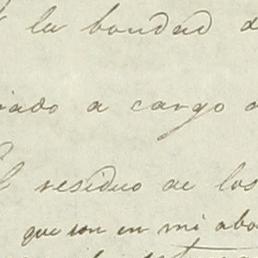 la bondad d
iado a cargo d
l residuo de los
que son en mi abo